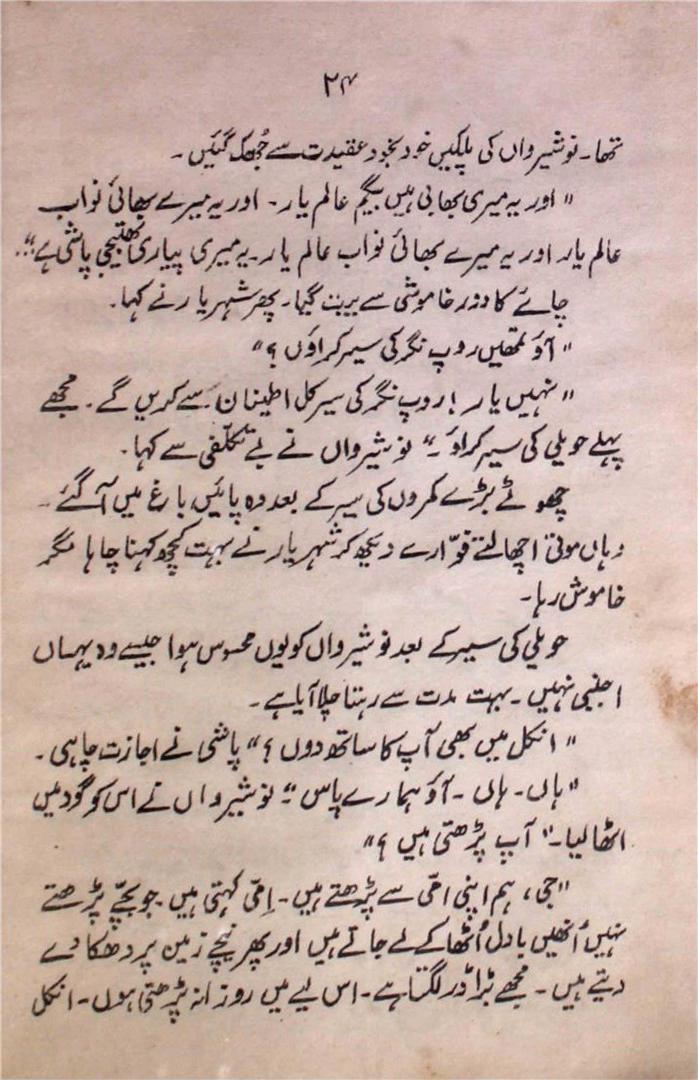 ۲۴
تھا۔ نوشیرواں کی پلکیں خود بخود عقیدت سے جُھک گئیں۔
" اور یہ میری بھابی ہیں بیگم عالم یار۔ اور یہ میرے بھائی نواب
عالم یار اور یہ میرے بھائی نواب عالم یار۔ یہ میری پیاری بھتیجی پاشی ہے"۔
چائے کا دور خاموشی سے بیت گیا۔ پھر شہریار نے کہا۔
" آؤ تمھیں روپ نگر کی سیر کراؤں ؟ "
" نہیں یار ! روپ نگر کی سیر کل اطینان سے کریں گے۔ مجھے
پہلے حویلی کی سیر کراؤ ۔" نوشیرواں نے بے تکلّفی سے کہا۔
چھوٹے بڑے کمروں کی سیر کے بعد وہ پائیں باغ میں آ گئے۔
وہاں موتی اچھالتے فوّارے دیکھ کر شہریار نے بہت کچھ کہنا چاہا مگر
خاموش رہا۔
حویلی کی سیر کے بعد نوشیرواں کو یوں محسوس ہوا جیسے وہ یہاں
اجنبی نہیں۔ بہت مدت سے رہتا چلا آیا ہے۔
" انکل میں بھی آپ کا ساتھ دوں ؟ " پاشی نے اجازت چاہی۔
" ہاں۔ ہاں ۔ آؤ ہمارے پاس "۔ نوشیرواں نے اس کو گود میں
اٹھا لیا۔ " آپ پڑھتی ہیں ؟ "
" جی، ہم اپنی امّی سے پڑھتے ہیں۔ امّی کہتی ہیں۔ جو بچّے پڑھتے
نہیں اُنھیں بادل اُٹھا کے لے جاتے ہیں اور پھر نیچے زمین پر دھکا دے
دیتے ہیں ۔ مجھے بڑا ڈر لگتا ہے۔ اس لیے میں روزانہ پڑھتی ہوں۔ انکل